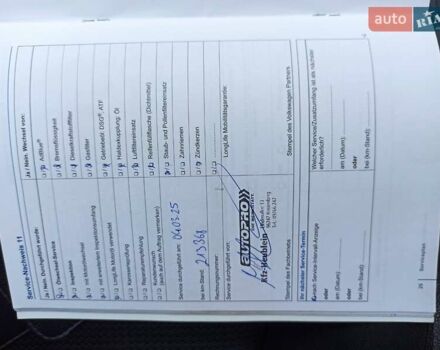 auto
RIA
Service-Nachweis 11
Ja / Nein Durchgeführt wurde:
Ölwechsel-Service
Inspektion
mit Motorölwechsel
mit erweitertem Inspektionsumfang
LongLife Motoröl verwendet
Karosserieprüfung
Reparaturempfehlung
Kundenwunsch
(auch auf dem Auftrag vermerken)
Service durchgeführt am: 040325
bei km-Stand: 213368
Rechnungsnummer:
Service durchgeführt von:
AUTOPRO
Kfz-Heublein
Stempel des Fachbetriebs
Ja / Nein Wechsel von:
AdBlue®
Bremsflüssigkeit
Dieselkraftstofffilter
Gasfilter
Getriebeöl DSG®, ATF
Haldexkupplung, Öl
Luftfiltereinsatz
Reifenfüllflasche (Dichtmittel)
Staub- und Pollenfiltereinsatz
Zahnriemen
Zündkerzen
LongLife Mobilitätsgarantie:
Stempel des Volkswagen Partners
Ihr nächster Service-Termin
nach Service-Intervall-Anzeige
oder
am (Datum)
oder
bei km-Stand:
Welcher Service/Zusatzumfang ist als nächster
erforderlich?
am (Datum)
oder
bei (km-Stand):
26
Serviceplan